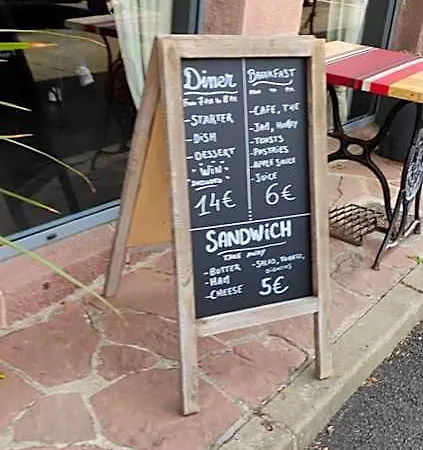 Diner
From 7 PM to 8 PM
-STARTER
-DISH
-DESSERT
-WIN-
14€
BREAKFAST
-CAFE, THE
-JAM, HONEY
-TOASTS
PASTRIES
-APPLE SAUCE
-JUICE
6€
SANDWICH
TAKE AWAY
-BUTTER
-HAM
-CHEESE
-SALAD,
5€